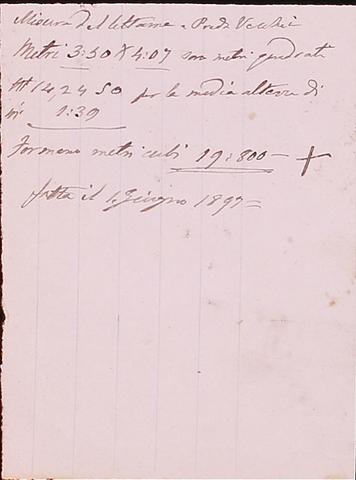 Misura del letame - Pred. Vecchi
Metri 3:50 X 4:07 sono metri quadrati
M 14,24 50 per la media altezza di
m 1:39
Formano metri cubi 19:800 — +
fatta il 1. Giugno 1897 =